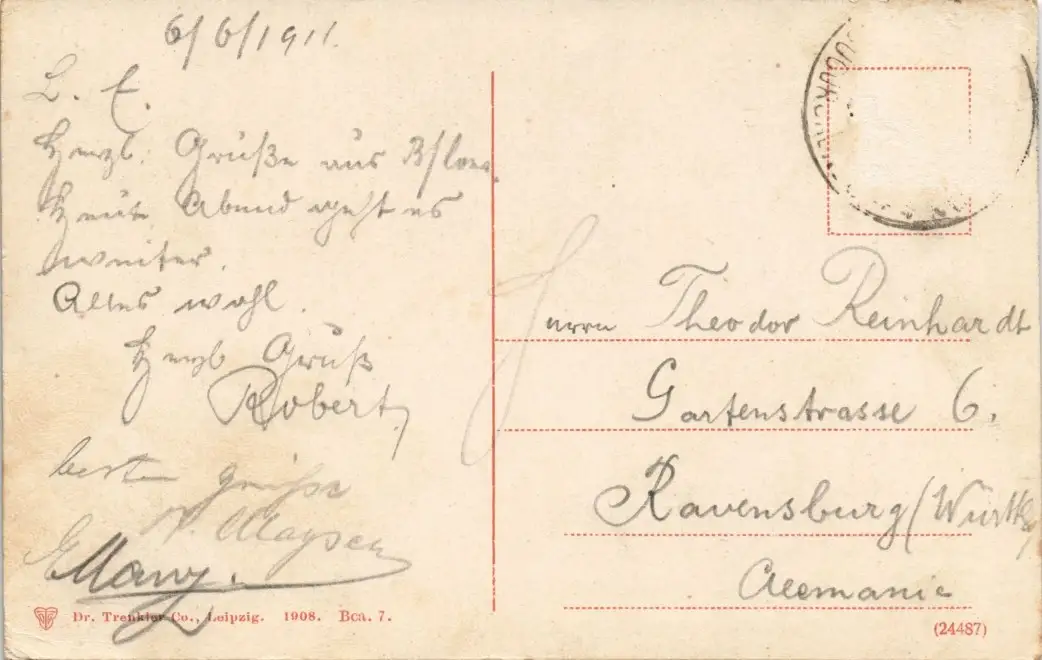 6/6/1911.
L. E.
Herzl. Grüße aus
Heute Abend geht es
weiter.
Alles wohl.
Herzl Gruß
Robert,
beste Grüße
Herrn Theodor Reinhardt
Gartenstrasse 6.
Ravensburg (Württbg)
Alemania
Dr. Trenkler Co., Leipzig. 1908. Bca. 7.
(24487)